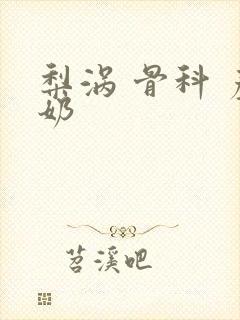 梨涡 骨科
奶
苕溪吧